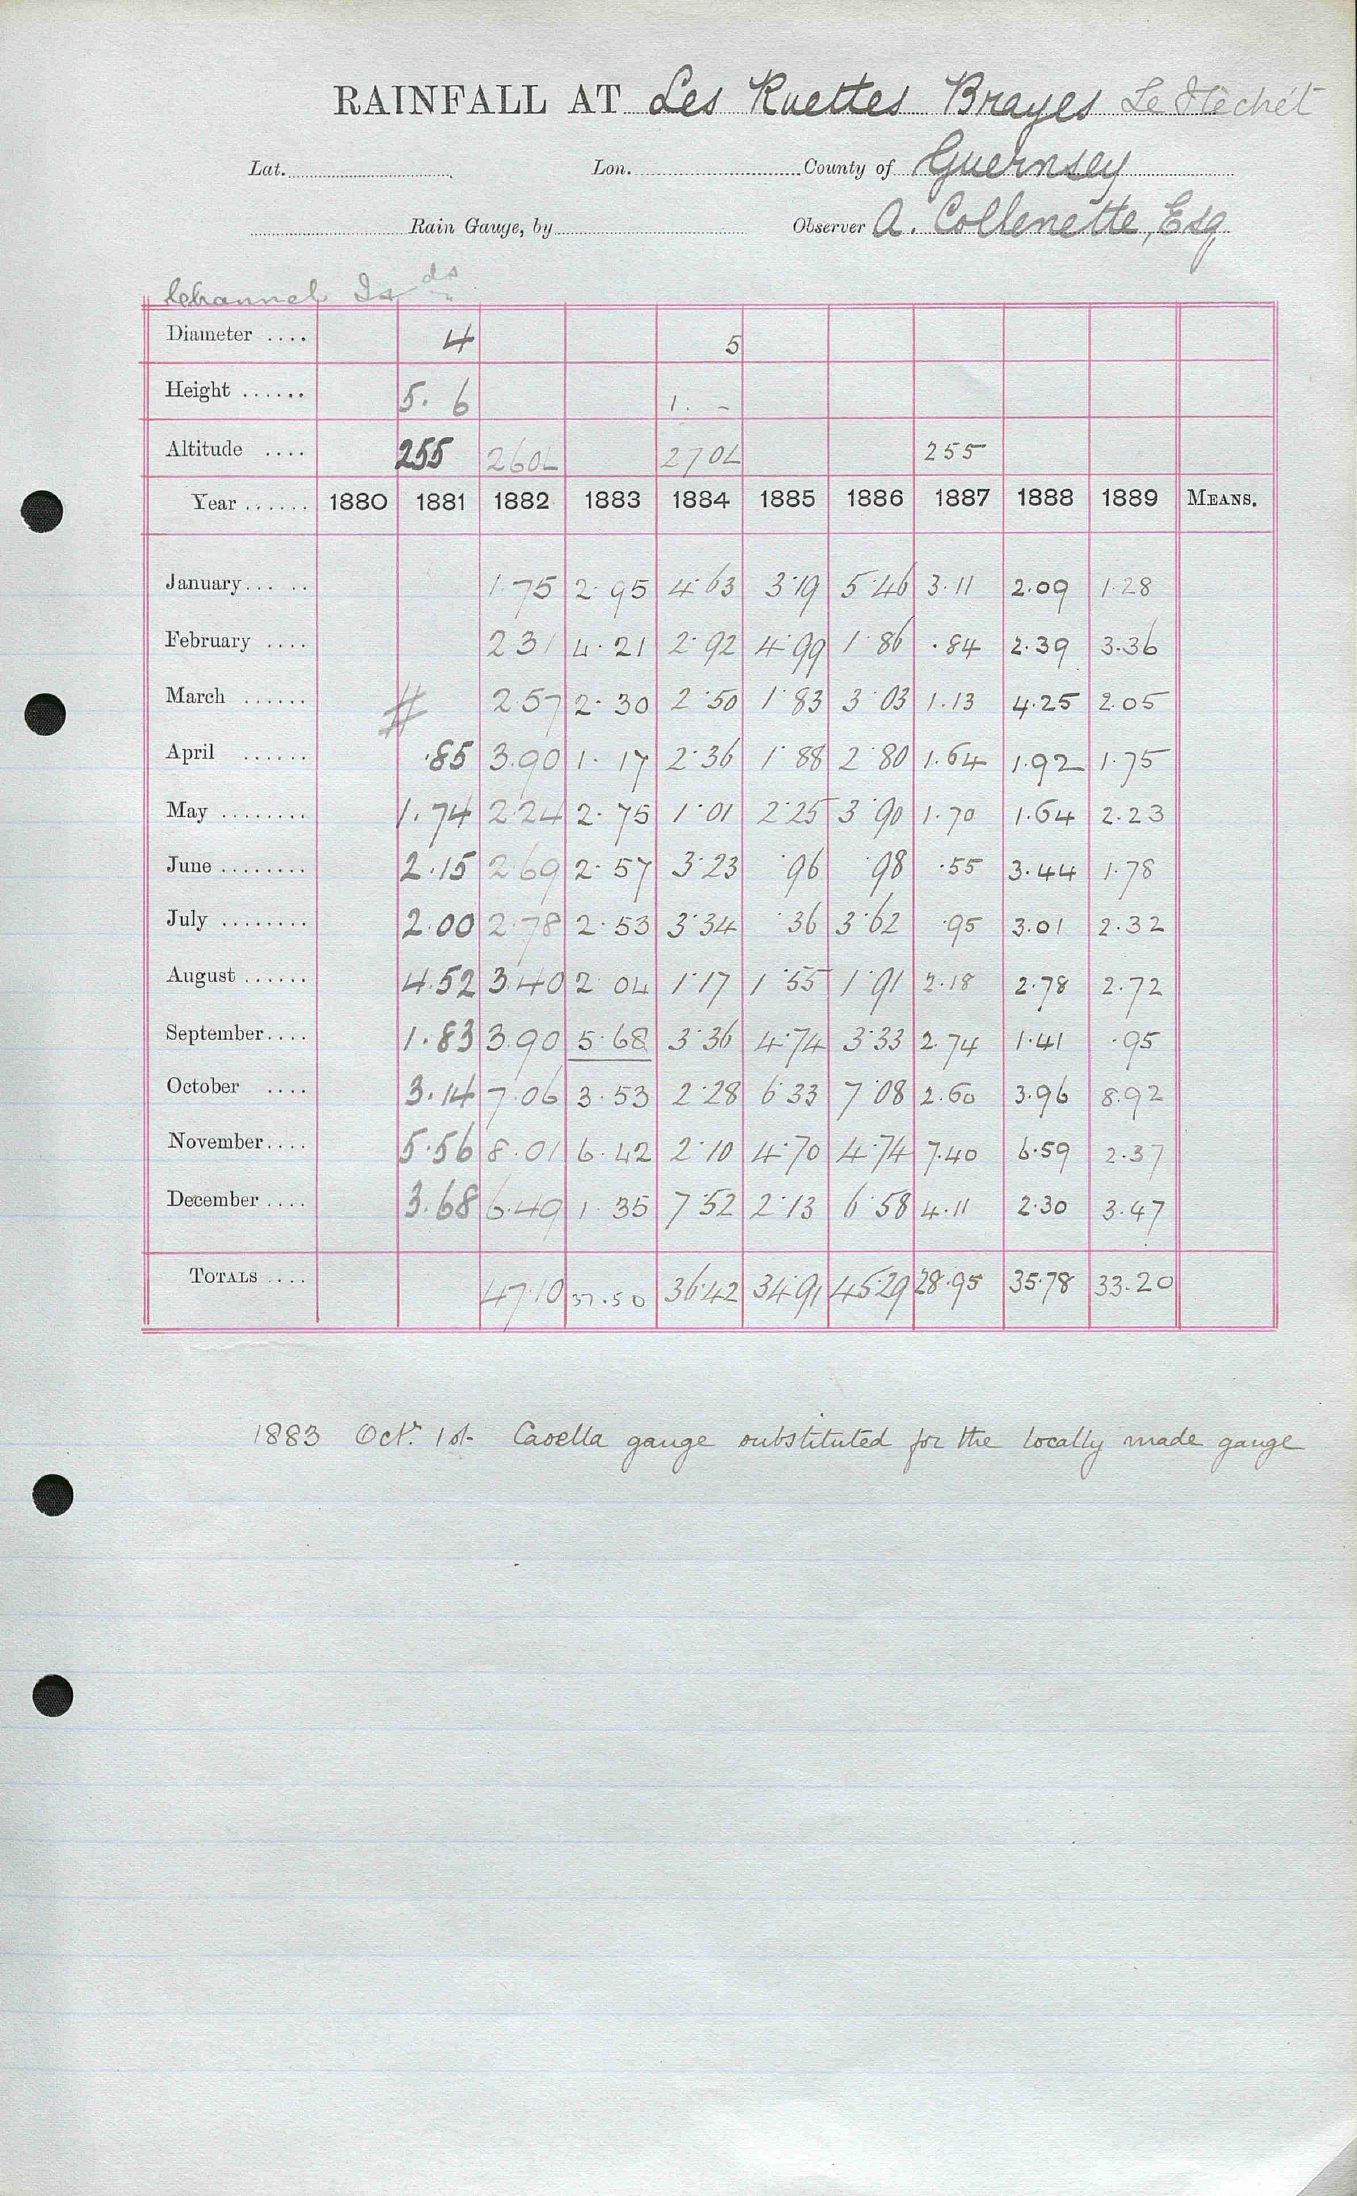 RAINFALL AT Les Ruettes Brayes Le
Lat. Lon. County of Guernsey
Rain Gauge, by Observer A. Collenette, Esq
Channel Is ds
Diameter .... 4 5
Height ...... 5. 6 1. -
Altitude .... 255 260L 270L 255
Year ...... 1880 1881 1882 1883 1884 1885 1886 1887 1888 1889 MEANS.
January... .. 1.75 2.95 4.63 3.19 5.46 3.11 2.09 1.28
February .... 2 31 4.21 2.92 4.99 1.86 .84 2.39 3.36
March ...... # 2 57 2.30 2.50 1.83 3 03 1.13 4.25 2.05
April ...... .85 3.90 1.17 2.36 1.88 2.80 1.64 1.92 1.75
May ........ 1.74 2.24 2.75 1.01 2.25 3.90 1.70 1.64 2.23
June ........ 2.15 2.69 2.57 3.23 .96 .98 .55 3.44 1.78
July ........ 2.00 2.78 2.53 3.34 .36 3.62 .95 3.01 2.32
August ...... 4.52 3.40 2 04 1.17 1.55 1.91 2.18 2.78 2.72
September.... 1.83 3.90 5.68 3.36 4.74 3.33 2.74 1.41 .95
October .... 3.14 7.06 3.53 2.28 6.33 7.08 2.60 3.96 8.92
November.... 5.56 8.01 6.42 2.10 4.70 4.74 7.40 6.59 2.37
December .... 3.68 6.49 1.35 7.52 2.13 6.58 4.11 2.30 3.47
TOTALS .... 47.10 37.50 36.42 34.91 45.29 28.95 35.78 33.20
1883 Octr. 1st Casella gauge substituted for the locally made gauge